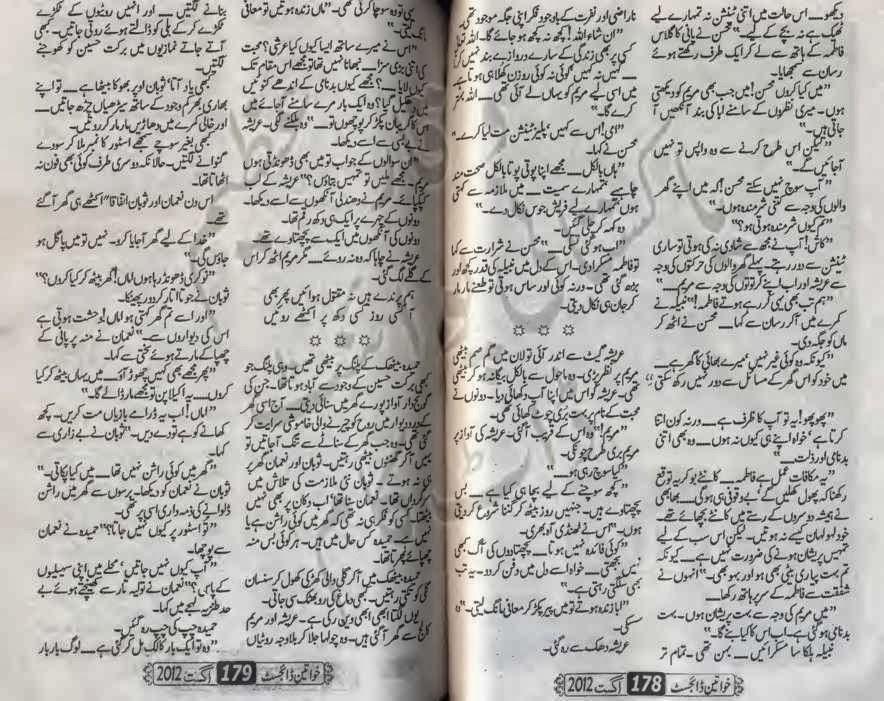 دیکھو ــــ اس حالت میں اتنی ٹینشن نہ تمہارے لیے
ٹھیک ہے نہ بچے کے لیے۔" محسن نے پانی کا گلاس
فاطمہ کے ہاتھ سے لے کر ایک طرف رکھتے ہوئے
رسان سے سمجھایا۔
"میں کیا کروں محسن! میں جب بھی مریم کو دیکھتی
ہوں۔ میری نظروں کے سامنے ابا کی بند آنکھیں آ
جاتی ہیں۔"
"لیکن اس طرح کرنے سے وہ واپس تو نہیں
آجائیں گے۔"
"آپ سوچ نہیں سکتے محسن! کہ میں اپنے گھر
والوں کی وجہ سے کتنی شرمندہ ہوں۔"
"تم کیوں شرمندہ ہوتی ہو؟"
"کاش! آپ نے مجھ سے شادی نہ کی ہوتی تو ساری
ٹینشن سے دور رہتے۔ پہلے گھر والوں کی حرکتوں کی وجہ
سے عریشہ اور اب اپنے کرتوتوں کی وجہ سے مریم ــــ"
"ہم تب بھی یہی کر رہے ہوتے فاطمہ!" نبیلہ نے
کمرے میں آکر رسان سے کہا ــــ محسن نے اٹھ کر
ماں کو جگہ دی۔
"کیونکہ وہ کوئی غیر نہیں، میرے بھائی کا گھر ہے ــــ
میں خود کو اس گھر کے مسائل سے دور نہیں رکھ سکتی۔"
"پھوپھو! یہ تو آپ کا ظرف ہے ــــ ورنہ کون اتنا
کرتا ہے، خواہ اپنے ہی کیوں نہ ہوں ــــ وہ بھی اتنی
بدنامی اور ذلت ــــ"
"یہ مکافات عمل ہے فاطمہ ــــ کانٹے بو کر یہ توقع
رکھنا کہ پھول کھلیں گے، بے وقوفی ہی ہوگی ــــ بھابھی
نے ہمیشہ دوسروں کے رستے میں کانٹے بچھائے تھے۔
خود لہولہان کیسے نہ ہوتیں۔ لیکن اس سب کے لیے
تمہیں پریشان ہونے کی ضرورت نہیں ہے ــــ کیونکہ
تم بہت پیاری بیٹی بھی ہو اور بہو بھی۔" انہوں نے
شفقت سے فاطمہ کے سر پر ہاتھ رکھا۔
"میں مریم کی وجہ سے بہت پریشان ہوں۔ بہت
بدنامی ہو گئی ہے۔ اب اس کا کیا بنے گا۔"
نبیلہ ہلکا سا مسکرائیں ــــ بہن تھی۔ تمام تر
ناراضی اور نفرت کے باوجود فکر اپنی جگہ موجود تھی۔
"ان شاء اللہ! کچھ نہ کچھ ہو جائے گا۔ اللہ تعالیٰ
کسی پر بھی زندگی کے سارے دروازے بند نہیں کرتا
ــــ کہیں نہ کہیں کوئی نہ کوئی روزن کھلا ہی ہوتا ہے
میں اسی لیے مریم کو یہاں لے آئی تھی ــــ اللہ بہتر
کرے گا۔"
"امی! اس سے کہیں، پلیز ٹینشن مت لیا کرے۔"
محسن نے کہا۔
"ہاں بالکل ــــ مجھے اپنا پوتی پوتا بالکل صحت مند
چاہیے، تمہارے سمیت ــــ میں ملازمہ سے کہتی
ہوں، تمہارے لیے فریش جوس نکال دے۔"
وہ کہہ کر چلی گئیں۔
"اب ہو گئی تسلی ــــ" محسن نے شرارت سے کہا
تو فاطمہ مسکرا دی۔ اس کے دل میں نبیلہ کی قدر کچھ اور
بڑھ گئی تھی۔ ورنہ کوئی اور ساس ہوتی تو طعنے مار مار
کر جان ہی نکال دیتی۔
☼ ☼ ☼
عریشہ گیٹ سے اندر آئی تو لان میں گم صم بیٹھی
مریم پر نظر پڑی۔ وہ ماحول سے بالکل بیگانہ ہو کر بیٹھی
تھی۔ عریشہ کو اس میں اپنا آپ دکھائی دیا۔ دونوں نے
محبت کے نام پر بہت بری چوٹ کھائی تھی۔
"مریم!" وہ اس کے قریب آگئی۔ عریشہ کی آواز پر
مریم بری طرح چونکی۔
"کیا سوچ رہی ہو ــــ"
"کچھ سوچنے کے لیے بچا ہی کیا ہے ــــ بس
پچھتاوے ہیں۔ جنہیں روز بیٹھ کر گننا شروع کر دیتی
ہوں۔" اس نے ٹھنڈی آہ بھری۔
"کوئی فائدہ نہیں ہوتا ــــ پچھتاووں کی آگ کبھی
نہیں بجھتی۔ خواہ اسے دل میں دفن کر دو۔ یہ تب
بھی سلگتی رہتی ہے۔"
"ابا زندہ ہوتے تو میں پیر پکڑ کر معافی مانگ لیتی۔" وہ
سسکی۔
عریشہ دھک سے رہ گئی۔
خواتین ڈائجسٹ 178 اگست 2012
یہی تو وہ سوچا کرتی تھی۔ "ماں زندہ ہوتیں تو معافی
مانگ لیتی۔"
"اس نے میرے ساتھ ایسا کیوں کیا عرشی؟ محبت
کی اتنی بڑی سزا۔ نبھانا نہیں تھا تو مجھے اس مقام تک
کیوں لایا ــــ؟ مجھے کیوں بدنامی کے اندھے کنویں
میں دھکیل گیا؟ وہ ایک بار میرے سامنے آجائے میں
اس کا گریبان پکڑ کر پوچھوں تو ــــ" وہ بلکنے لگی۔ عریشہ
نے بے بسی سے اسے دیکھا۔
"ان سوالوں کے جواب تو میں بھی ڈھونڈتی ہوں
مریم۔ مجھے ملیں تو تمہیں بتاؤں؟" عریشہ کے لب
کپکپائے۔ مریم نے دھندلی آنکھوں سے اسے دیکھا۔
دونوں کے چہرے پر ایک ہی دکھ رقم تھا۔
دونوں کی آنکھوں میں ایک سے پچھتاوے تھے۔
عریشہ نے چاہا کہ وہ نہ روئے ــــ مگر مریم اٹھ کر اس
کے گلے لگ گئی۔
ہم پرندے ہیں نہ مقتول ہوائیں پھر بھی
آ کسی روز کسی دکھ پر اکٹھے روئیں
☼ ☼ ☼
حمیدہ بیٹھک کے پلنگ پر بیٹھی تھیں۔ وہی پلنگ جو
کبھی برکت حسین کے وجود سے آباد ہوتا تھا۔ جن کی
گونج دار آواز پورے گھر میں سنائی دیتی ــــ آج اسی گھر
کے در و دیوار میں روح کو چیر نے والی خاموشی سرایت کر
گئی تھی۔ وہ جب گھر کے سناٹے سے تنگ آجاتیں تو
یہیں آکر گھنٹوں بیٹھی رہتیں۔ ثوبان اور نعمان گھر پر
ہی نہ ہوتے۔ ثوبان نئی ملازمت کی تلاش میں
سرگرداں تھا۔ نعمان بتا تھا، اب دکان پر بھی نہیں
بیٹھتا۔ کسی کو فکر ہی نہ تھی کہ گھر میں کوئی راشن ہے یا
نہیں ہے۔ حمیدہ کس حال میں ہیں۔ ہر کوئی بس منہ
چھپائے پھرتا تھا۔
حمیدہ بیٹھک میں آکر گلی والی کھڑکی کھول کر سنسان
گلی کو تکتی رہتیں۔ کبھی دماغ کی رو بھٹک سی جاتی۔
یوں لگتا ابھی ابھی وہیں کی رہی ہے۔ عریشہ اور مریم
کالج سے گھر آگئی ہیں۔ وہ چولہا جلا کر بلاوجہ روٹیاں
بنانے لگتیں ــــ اور انہیں روٹیوں کے ٹکڑے
ٹکڑے کر کے بلی کو ڈالتے ہوئے روتی جاتیں۔ کبھی
آتے جاتے نمازیوں میں برکت حسین کو کھوجنے
لگتیں۔
کبھی یاد آتا، ثوبان اوپر بھوکا بیٹھا ہے ــــ تو اپنے
بھاری بھرکم وجود کے ساتھ سیڑھیاں چڑھ جاتیں ــــ
اور خالی کمرے میں دھاڑیں مار مار کر روتیں۔
کبھی بغیر سوچے سمجھے اسٹور کا نمبر ملا کر سودے
گنوانے لگتیں۔ حالانکہ دوسری طرف کوئی بھی فون نہ
اٹھاتا تھا۔
اس دن نعمان اور ثوبان اتفاقاً اکٹھے ہی گھر آگئے
تھے۔
"خدا کے لیے گھر آجایا کرو۔ نہیں تو میں پاگل ہو
جاؤں گی۔"
"نوکری ڈھونڈ رہا ہوں اماں! گھر بیٹھ کر کیا کروں؟"
ثوبان نے جوتا اتار کر دور پھینکا۔
"اور اسے تم گھر کہتی ہو اماں! وحشت ہوتی ہے
اس کی دیواروں سے۔" نعمان نے منہ پر پانی کے
چھپاکے مارتے ہوئے سختی سے کہا۔
"پھر مجھے بھی کہیں چھوڑ آؤ ــــ میں یہاں بیٹھ کر کیا
کروں ــــ یہ اکیلا پن تو مجھے مار ڈالے گا۔"
"اماں! اب یہ ڈرامے بازیاں مت کریں۔ کچھ
کھانے کو ہے تو دے دیں۔" ثوبان نے بے زاری سے
کہا۔
"گھر میں کوئی راشن نہیں تھا ــــ میں کیا پکاتی۔"
ثوبان نے نعمان کو دیکھا۔ برسوں سے گھر میں راشن
ڈلوانے کی ذمہ داری اسی پر تھی۔
"تو اسٹور پر کیوں نہیں جاتا؟" حمیدہ نے نعمان
سے پوچھا۔
"آپ کیوں نہیں جاتیں، محلے میں اپنی سہیلیوں
کے پاس؟" نعمان نے تولیہ تار سے کھینچتے ہوئے بے
حد طنزیہ لہجے میں کہا۔
حمیدہ چپ کی چپ رہ گئیں۔
"وہ تو ایک بار کالک مل کر گئی ہے ــــ لوگ بار بار
خواتین ڈائجسٹ 179 اگست 2012